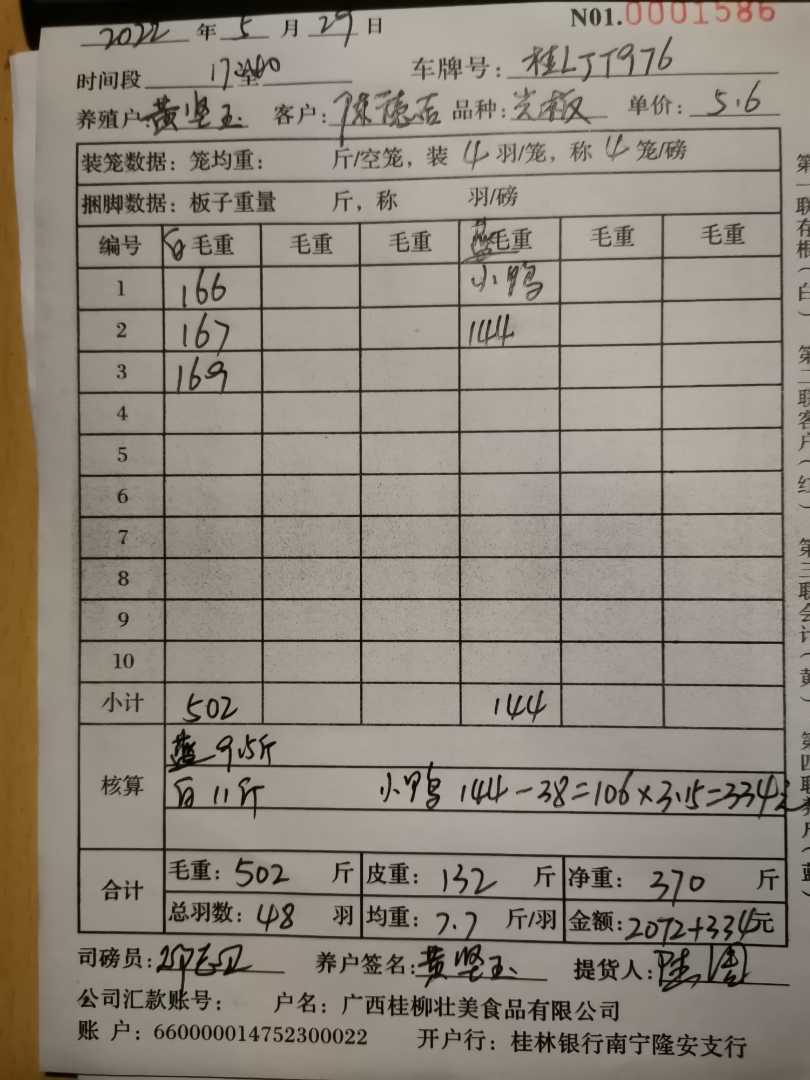 2022 年 5 月 29 日 N01.0001586
时间段 17:40 至 车牌号: 桂LJT976
养殖户: 黄坚玉 客户: 陈德店 品种: 光板 单价: 5.6
装笼数据: 笼均重: 斤/空笼, 装 4 羽/笼, 称 4 笼/磅
捆脚数据: 板子重量 斤, 称 羽/磅
编号 白毛重 毛重 毛重 蓝毛重 毛重 毛重
1 166 小鸭
2 167 144
3 169
4
5
6
7
8
9
10
小计 502 144
蓝 9.5斤
核算 白 11斤 小鸭 144-38=106×3.15=334元
合计 毛重: 502 斤 皮重: 132 斤 净重: 370 斤
总羽数: 48 羽 均重: 7.7 斤/羽 金额: 2072+334元
司磅员: 养户签名: 黄坚玉 提货人:
公司汇款账号: 户名: 广西桂柳壮美食品有限公司
账 户: 660000014752300022 开户行: 桂林银行南宁隆安支行
第一联存根(白) 第二联客户(红) 第三联会计(黄) 第四联养户(蓝)